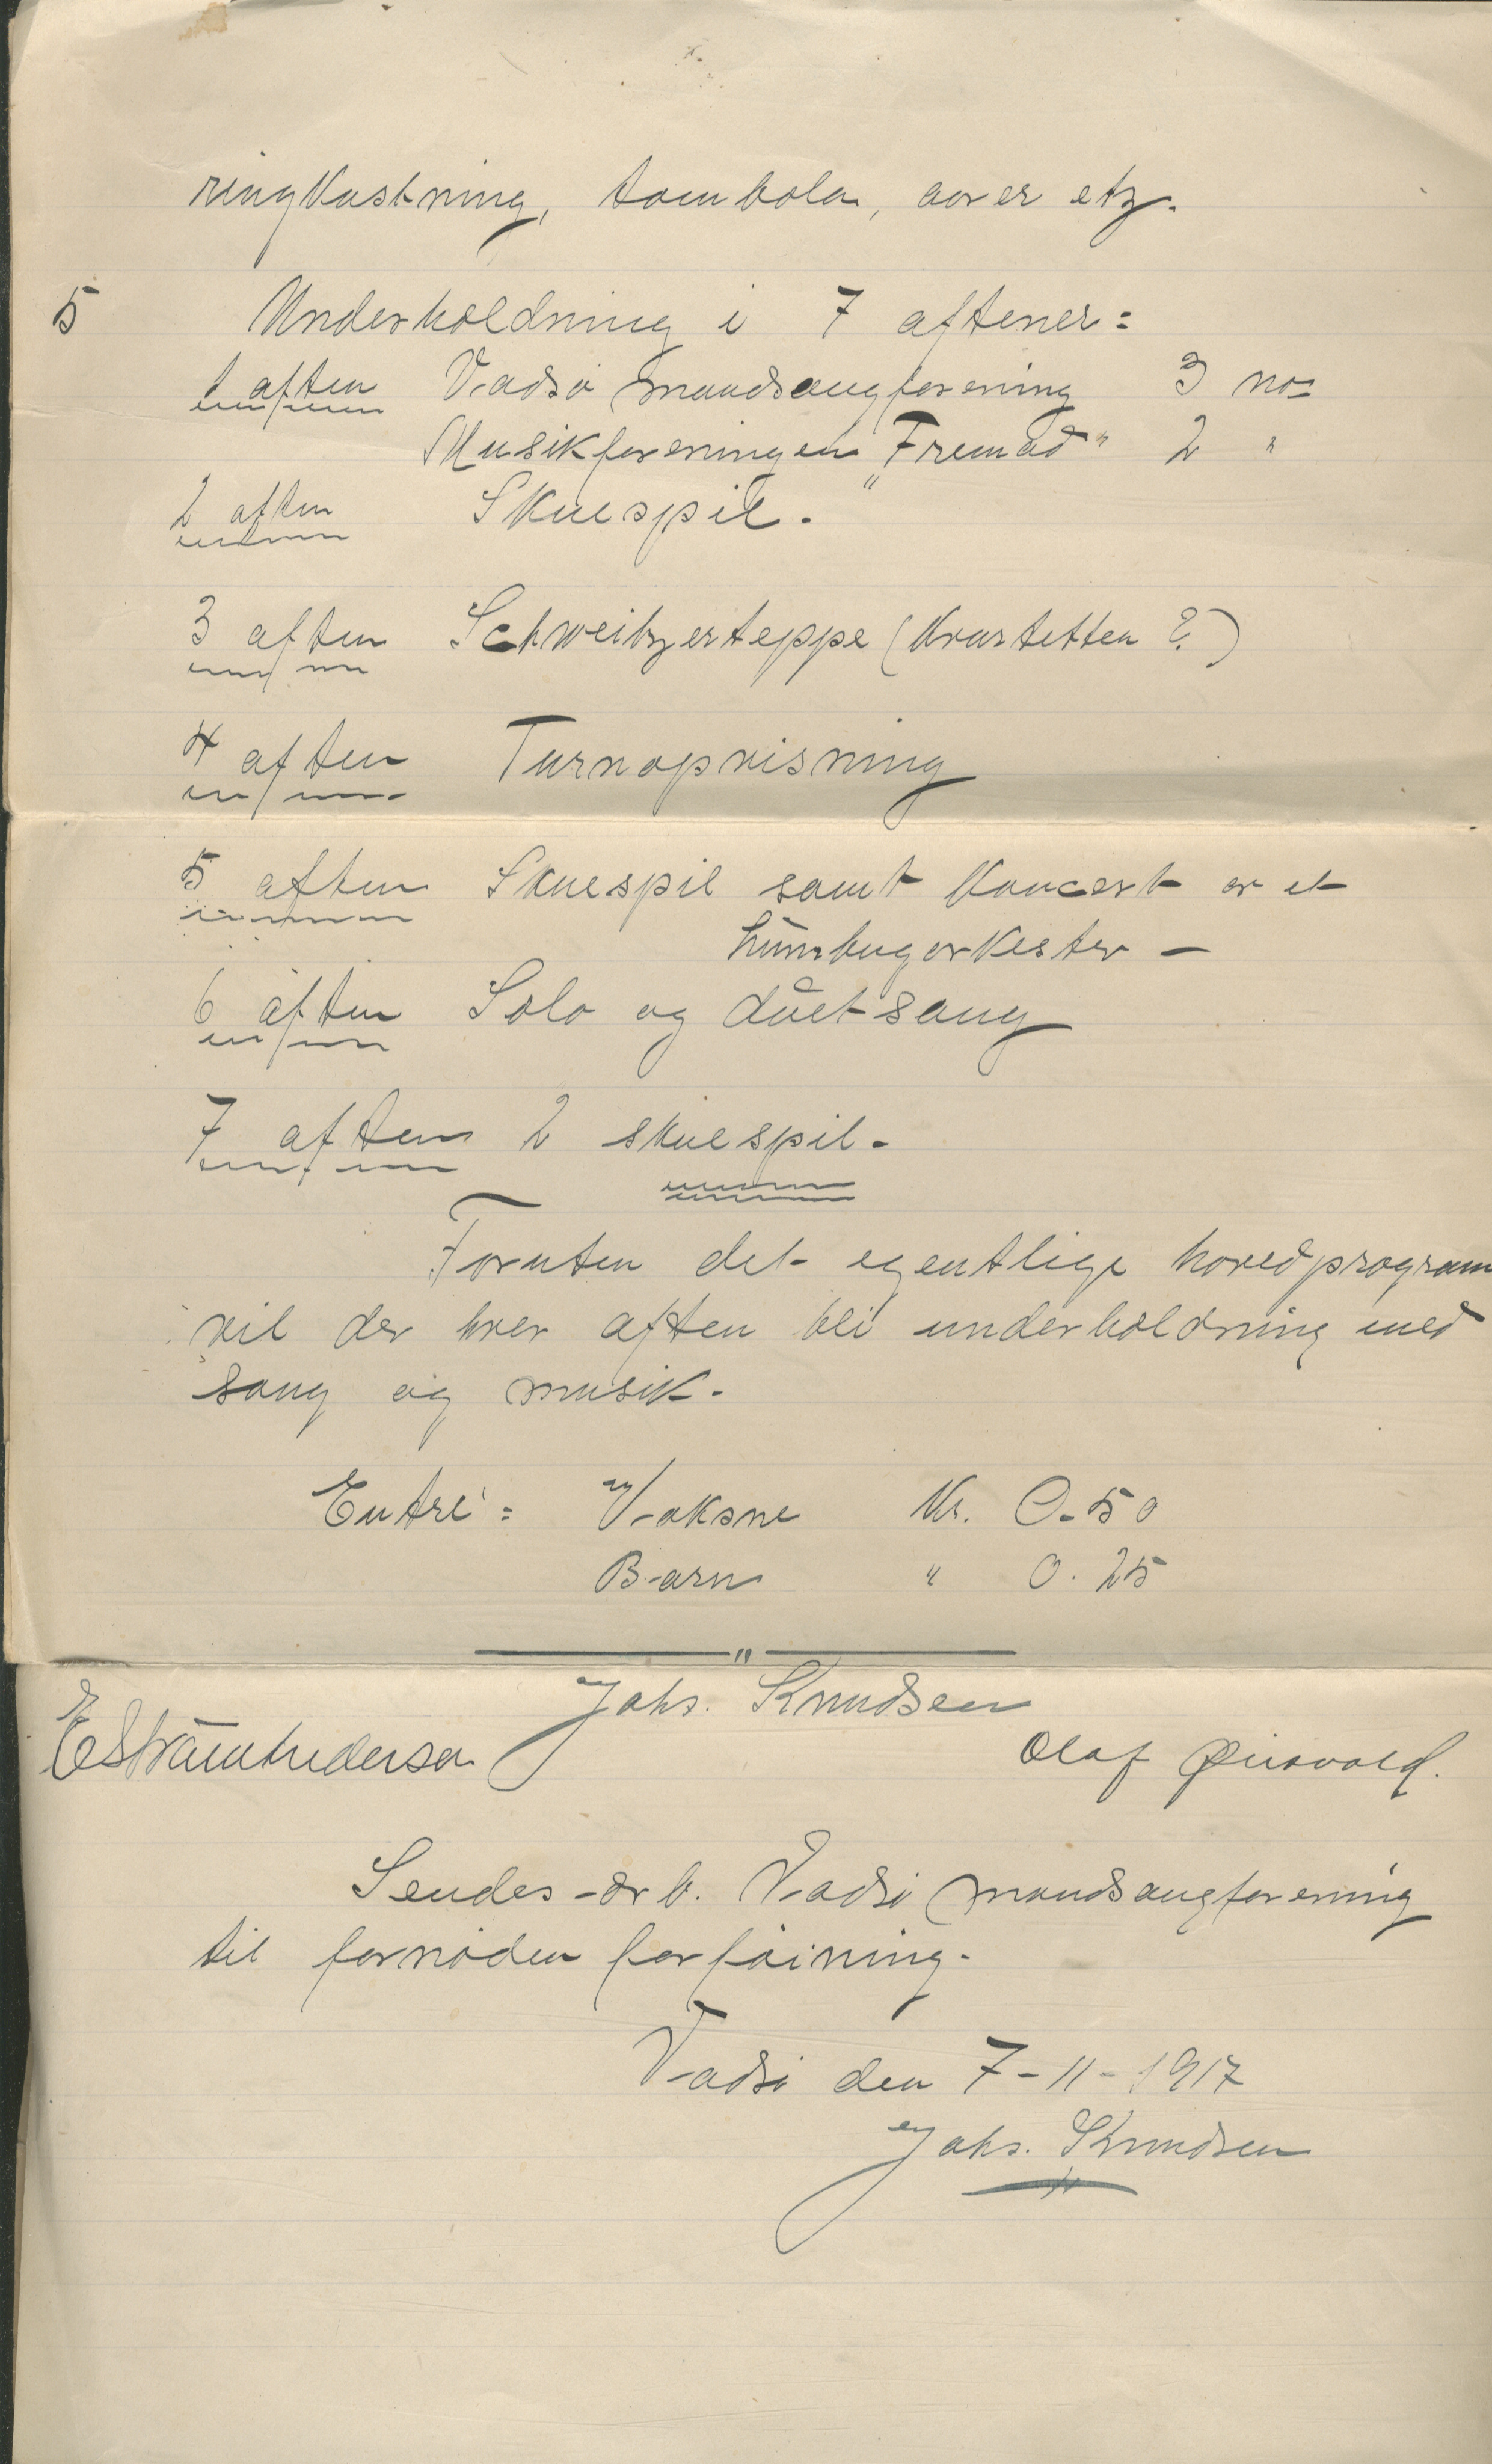 ringkastning, tombola, aover etz.
5 Underholdning i 7 aftener:
1 aften Vadsø mandsangforening 3 no
Musikforeningen „Fremad" 2 "
2 aften Skuespil.
3 aften Schweitzerteppe (Kvartetten ?)
4 aften Turnopvisning
5 aften Skuespil samt Koncert av et
humbugorkester —
6 aften Solo og duetsang
7 aften 2 skuespil.
Foruten det egentlige hovedprogram
vil der hver aften bli underholdning med
sang og musik.
Entré: Voksne Kr. 0.50
Barn " 0.25
Johs. Knudsen
Olaf
Sendes ærb. Vadsø mandsangforening
til fornøden forføining.
Vadsø den 7-11-1917
Johs. Knudsen